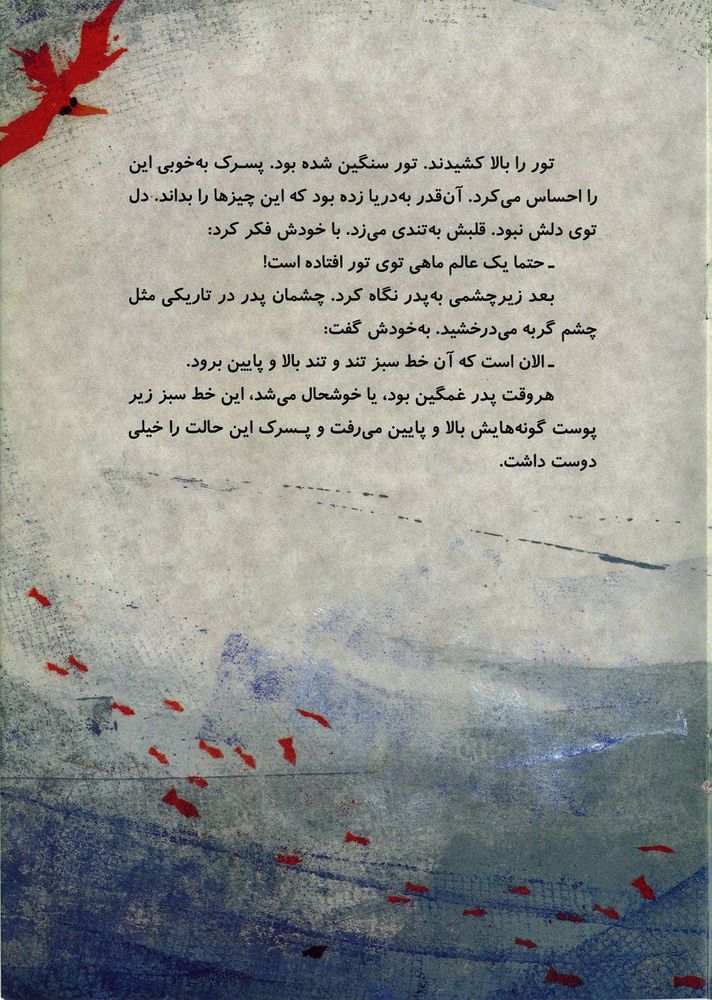 تور را بالا کشیدند. تور سنگین شده بود. پسرک به‌خوبی این
را احساس می‌کرد. آن‌قدر به‌دریا زده بود که این چیزها را بداند. دل
توی دلش نبود. قلبش به‌تندی می‌زد. با خودش فکر کرد:
ـ حتما یک عالم ماهی توی تور افتاده است!
بعد زیرچشمی به‌پدر نگاه کرد. چشمان پدر در تاریکی مثل
چشم گربه می‌درخشید. به‌خودش گفت:
ـ الان است که آن خط سبز تند و تند بالا و پایین برود.
هروقت پدر غمگین بود، یا خوشحال می‌شد، این خط سبز زیر
پوست گونه‌هایش بالا و پایین می‌رفت و پسرک این حالت را خیلی
دوست داشت.